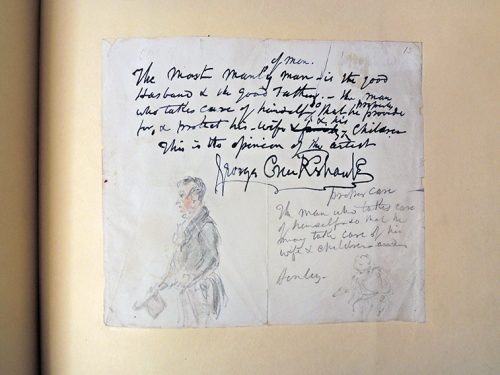 of men.
The most manly man is the good
Husband & the good Father. – the man
who takes care of himself so that he properly provide
for, & protect his wife & his family Children
This is the opinion of the artist
George Cruikshank
proper care
The man who takes care
of himself so that he
may take care of his
wife & children